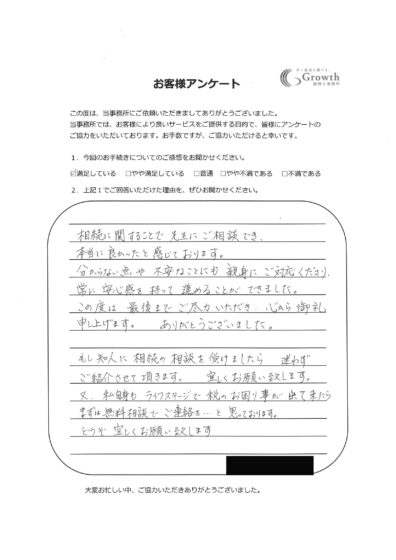 お客様アンケート
Growth
税理士事務所
この度は、当事務所にご依頼いただきましてありがとうございました。
当事務所では、お客様により良いサービスをご提供する目的で、皆様にアンケートの
ご協力をいただいております。お手数ですが、ご協力いただけると幸いです。
１．今回のお手続きについてのご感想をお聞かせください。
☑満足している □やや満足している □普通 □やや不満である □不満である
２．上記１でご回答いただけた理由を、ぜひお聞かせください。
相続に関することで 先生に ご相談でき、
本当に良かったと感じております。
分からない点や 不安なことにも 親身に ご対応くださり、
常に 安心感を 持って 進めることができました。
この度は 最後まで ご尽力いただき、心から 御礼
申し上げます。 ありがとうございました。
もし知人に 相続の 相談を 受けましたら 迷わず
ご紹介させて 頂きます。 宜しくお願い致します。
又、私自身も ライフステージで 税のお困り事が 出て来たら
まずは無料相談で ご連絡を…と 思っております。
どうぞ 宜しくお願い致します
大変お忙しい中、ご協力いただきありがとうございました。